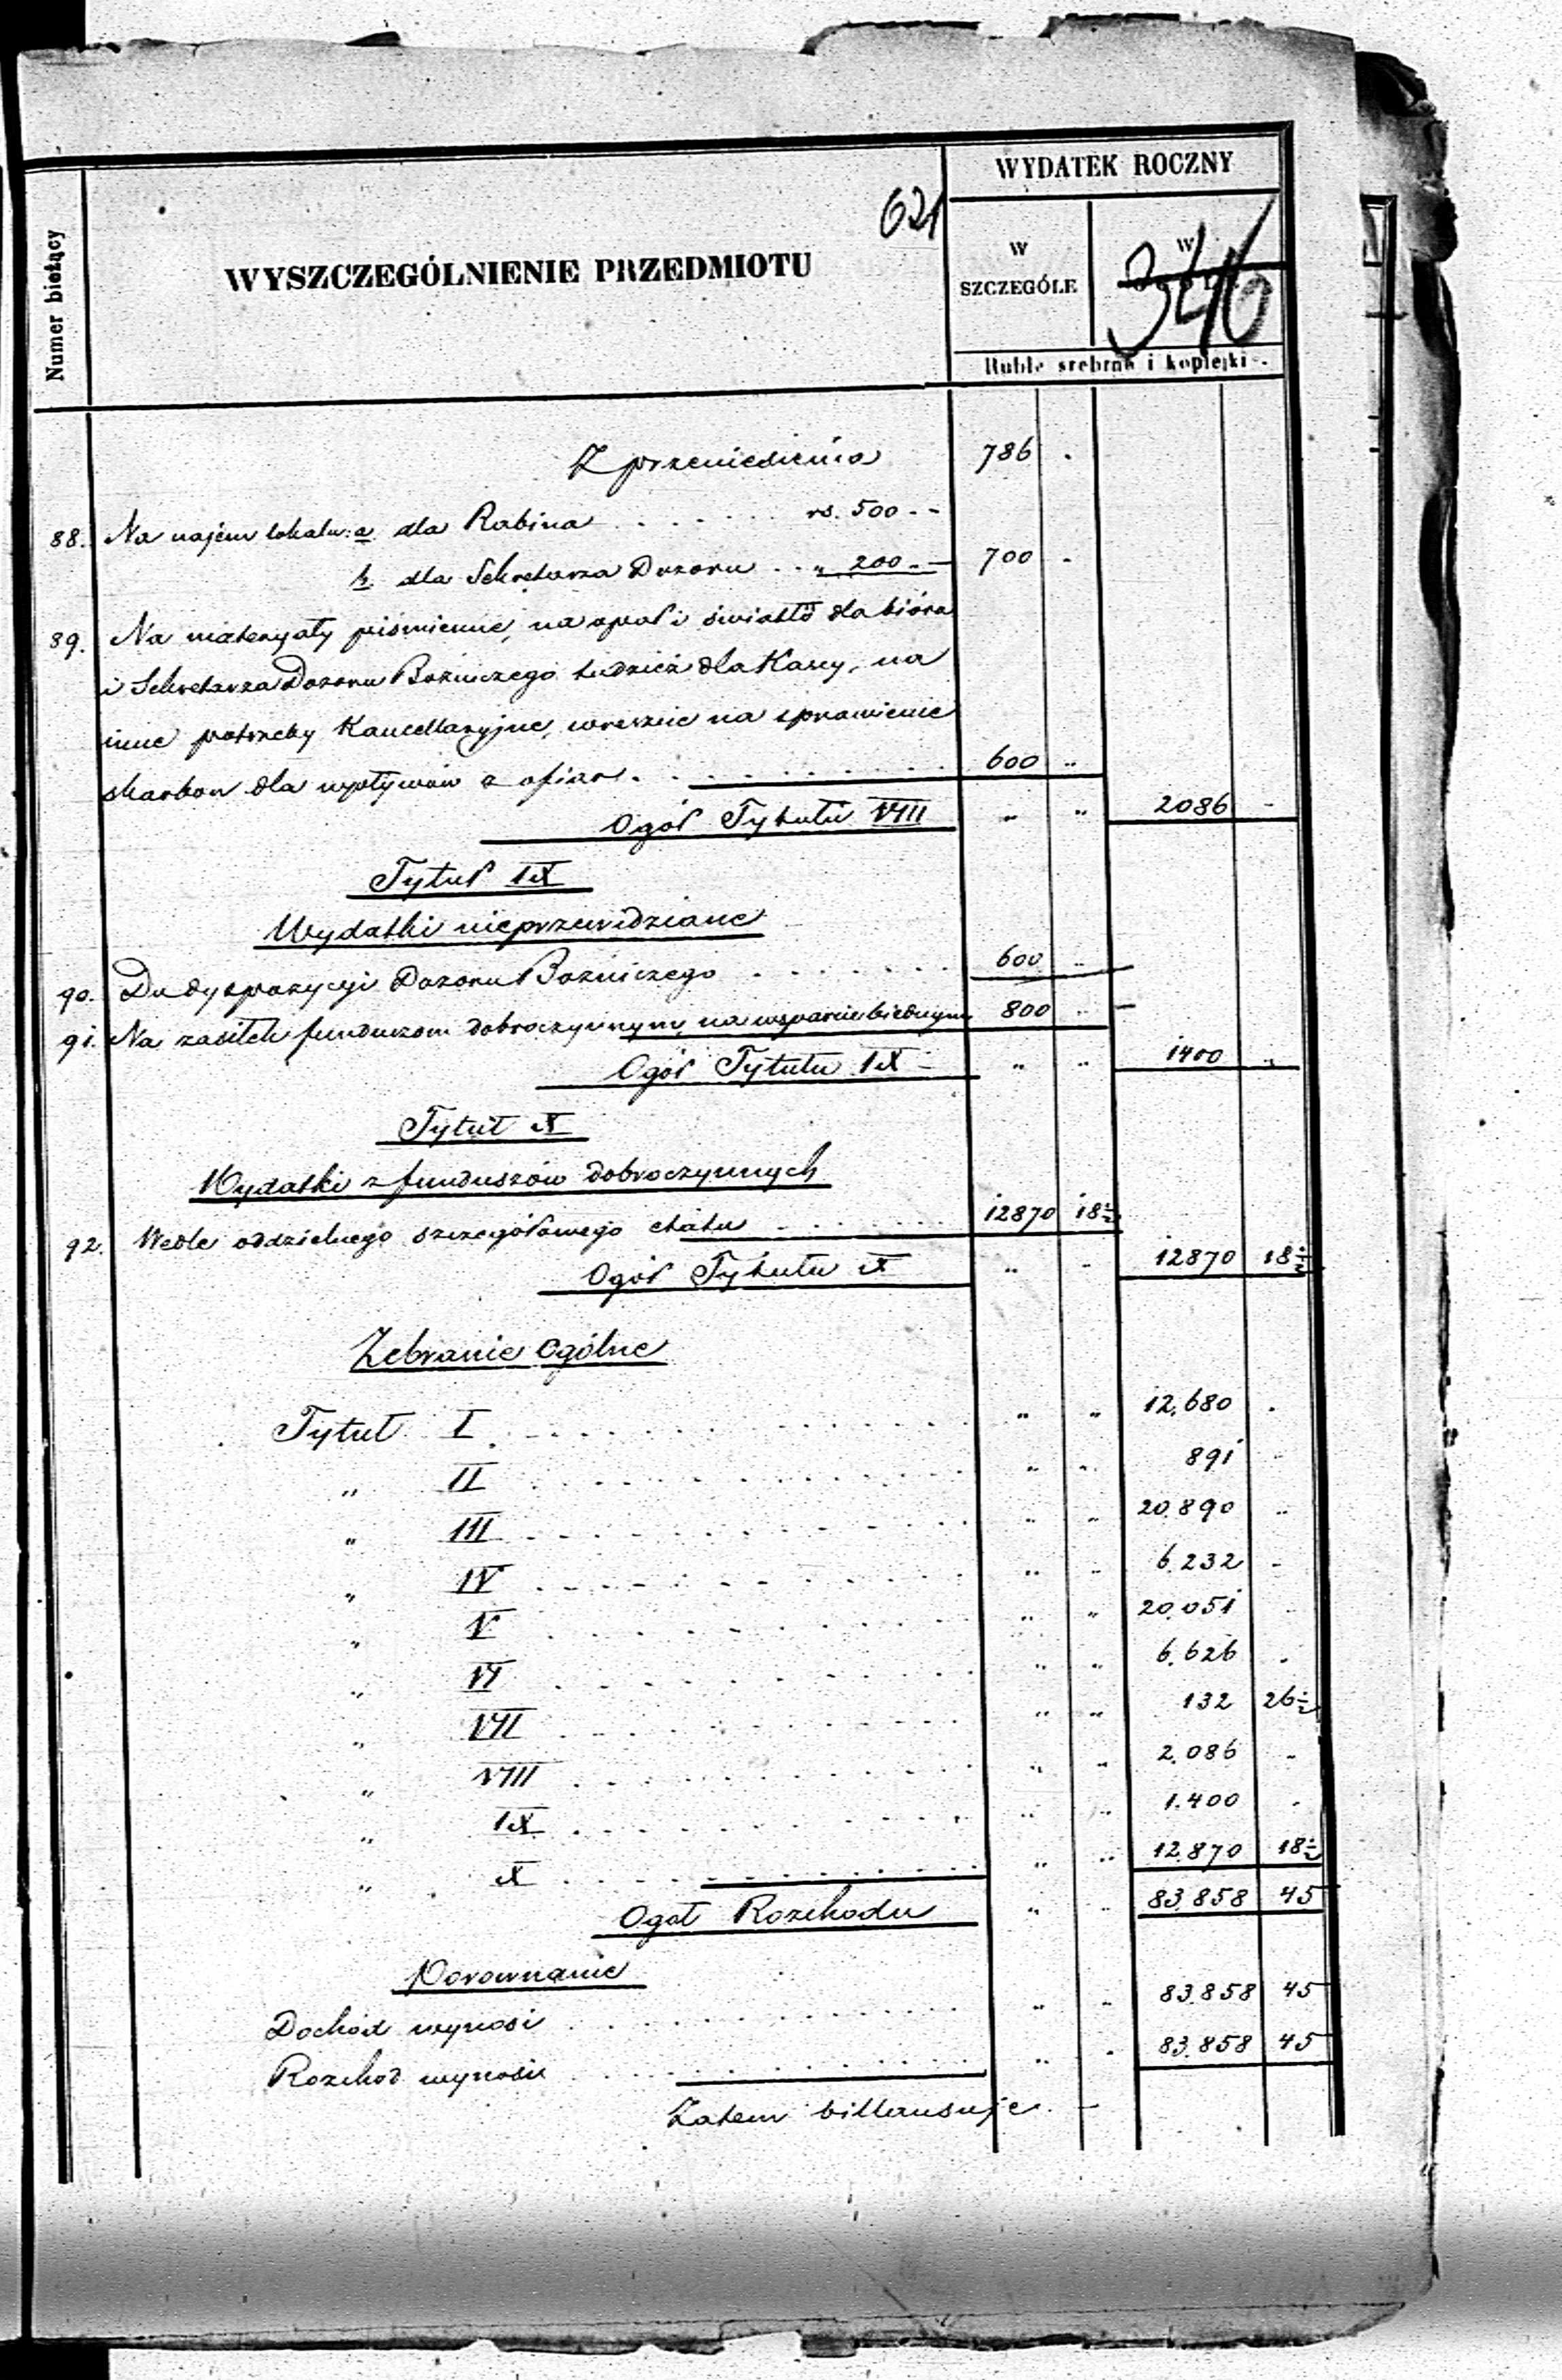 WYDATEK ROCZNY
621
346
Numer bieżący
WYSZCZEGÓLNIENIE PRZEDMIOTU
W SZCZEGÓLE
W
Ruble srebrne i kopiejki
Z przeniesienia 786 .
88. Na najem lokalu: a. dla Rabina . . . . . . rs. 500 - -
b. dla Sekretarza Dozoru . . „ 200 - - 700 -
89. Na materyały piśmienne, na opał i światło dla bióra
i Sekretarza Dozoru Bożniczego tudzież dla Kassy, na
inne potrzeby Kancellaryjne, wreszcie na sprawienie
skarbon dla wpływów z ofiar . . . . . . . . 600 „
Ogół Tytułu VIII „ „ 2086 -
Tytuł IX
Wydatki nieprzewidziane
90. Do dyspozycyi Dozoru Bożniczego . . . . . . 600 „
91. Na zasiłek funduszom dobroczynnym, na wsparcie biednym 800 „
Ogół Tytułu IX - „ „ 1400 „
Tytuł X
Wydatki z funduszów dobroczynnych
92. Wedle oddzielnego szczegółowego etatu . . . . . . 12870 18½
Ogół Tytułu X „ - 12870 18½
Zebranie Ogólne
Tytuł I . . . . . . . . . . „ „ 12.680 .
„ II . . . . . . . . . . „ „ 891 „
„ III . . . . . . . . . . „ „ 20.890 „
„ IV . . . . . . . . . . „ „ 6.232 -
„ V . . . . . . . . . . „ „ 20.051 „
„ VI . . . . . . . . . . „ „ 6.626 .
„ VII . . . . . . . . . . „ „ 132 26½
„ VIII . . . . . . . . . . „ „ 2.086 „
„ IX . . . . . . . . . . „ „ 1.400 .
„ X . . . . . . . . . . „ „ 12.870 18½
Ogół Rozchodu „ „ 83.858 45
Porownanie
Dochód wynosi . . . . . . . . . . „ „ 83.858 45
Rozchod wynosi . . . . . . . . . . „ . 83.858 45
Zatem billansuje . -